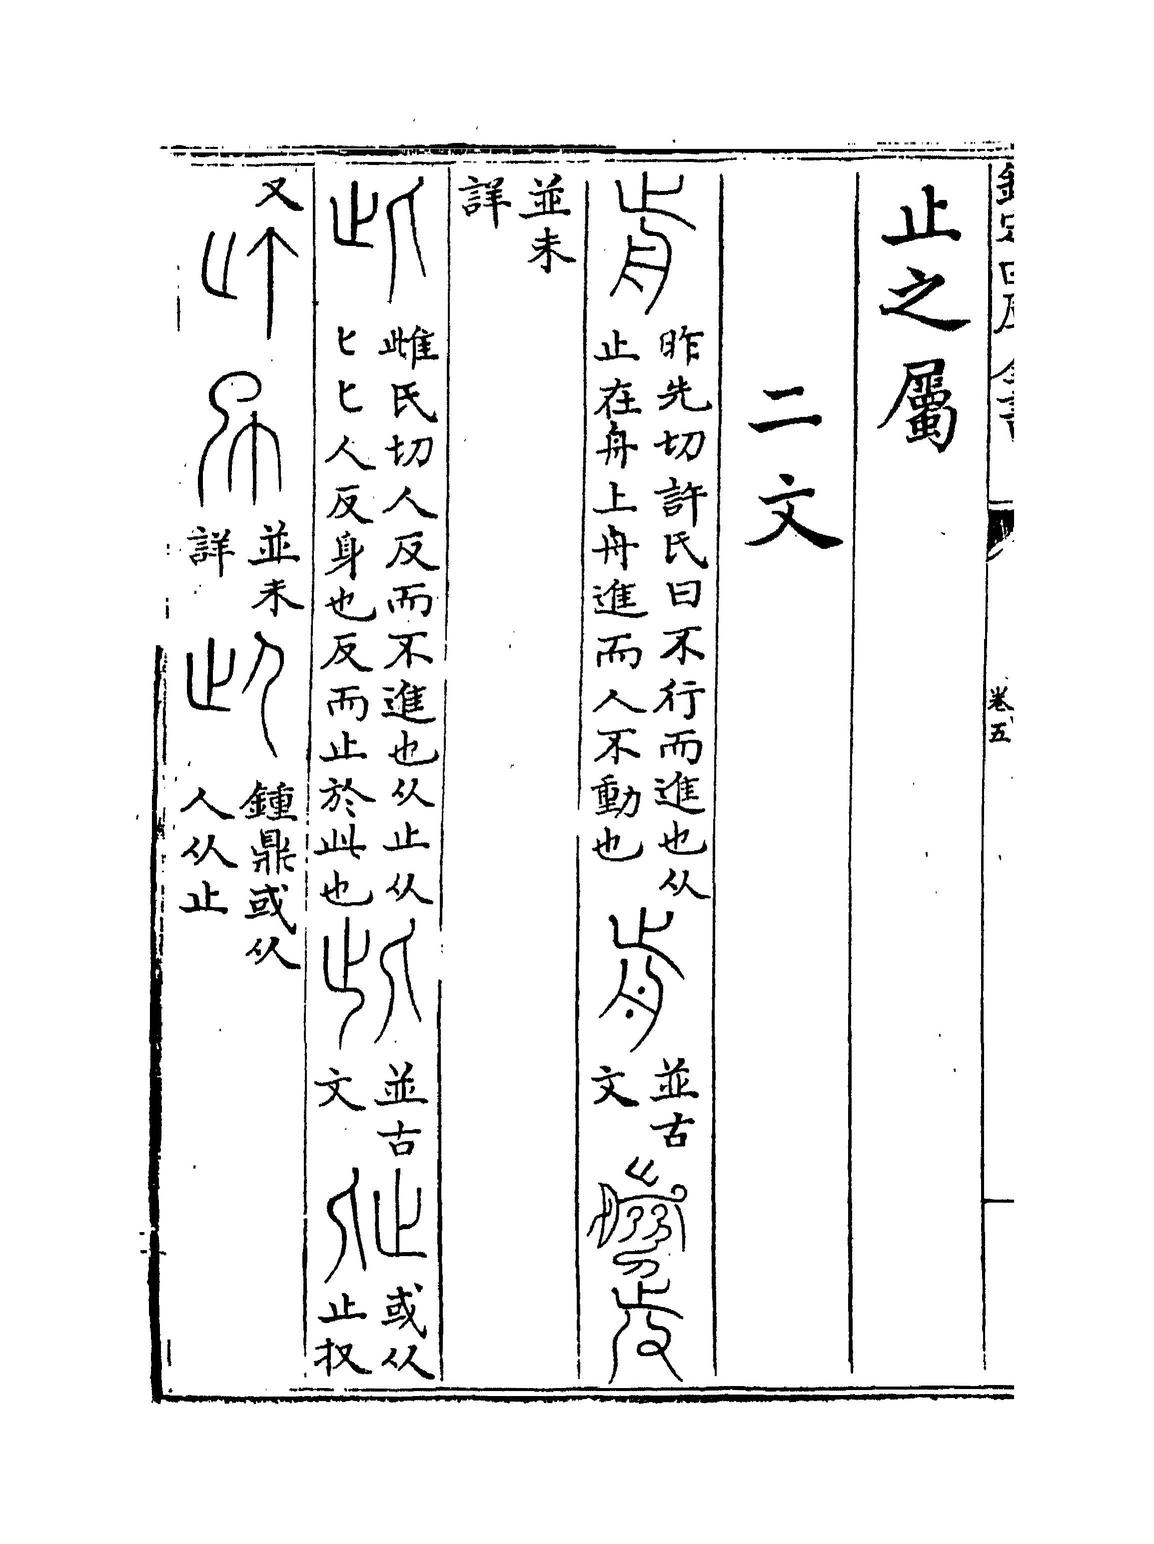 欽定四庫全書
卷五
止之屬
二文
歬
昨先切許氏曰不行而進也从
止在舟上舟進而人不動也
並古
文
並未
詳
此
雌氏切人反而不進也从止从
匕匕人反身也反而止於此也
並古
文
或从
止扠
又
並未
詳
鍾鼎或从
人从止